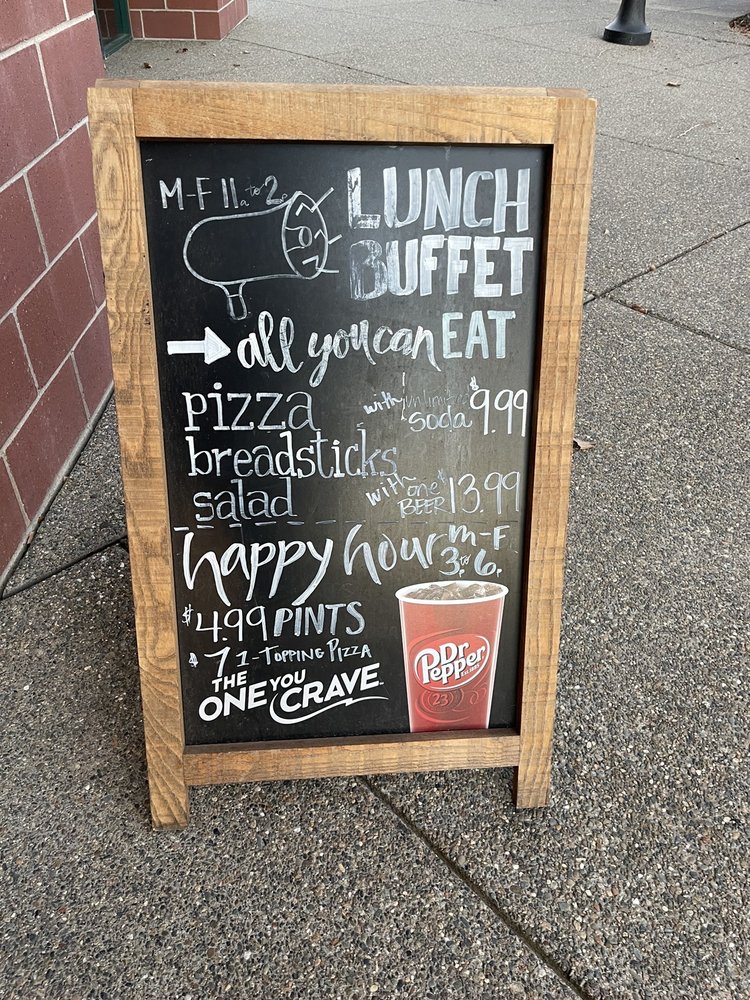 M-F 11a to 2p
LUNCH
BUFFET
all you can EAT
pizza
breadsticks
salad
with unlimited soda $9.99
with one BEER $13.99
happy hour M-F
3 to 6p
$4.99 PINTS
$7 1-TOPPING PIZZA
THE
ONE YOU
CRAVE
Dr
Pepper
EST. 1885
23